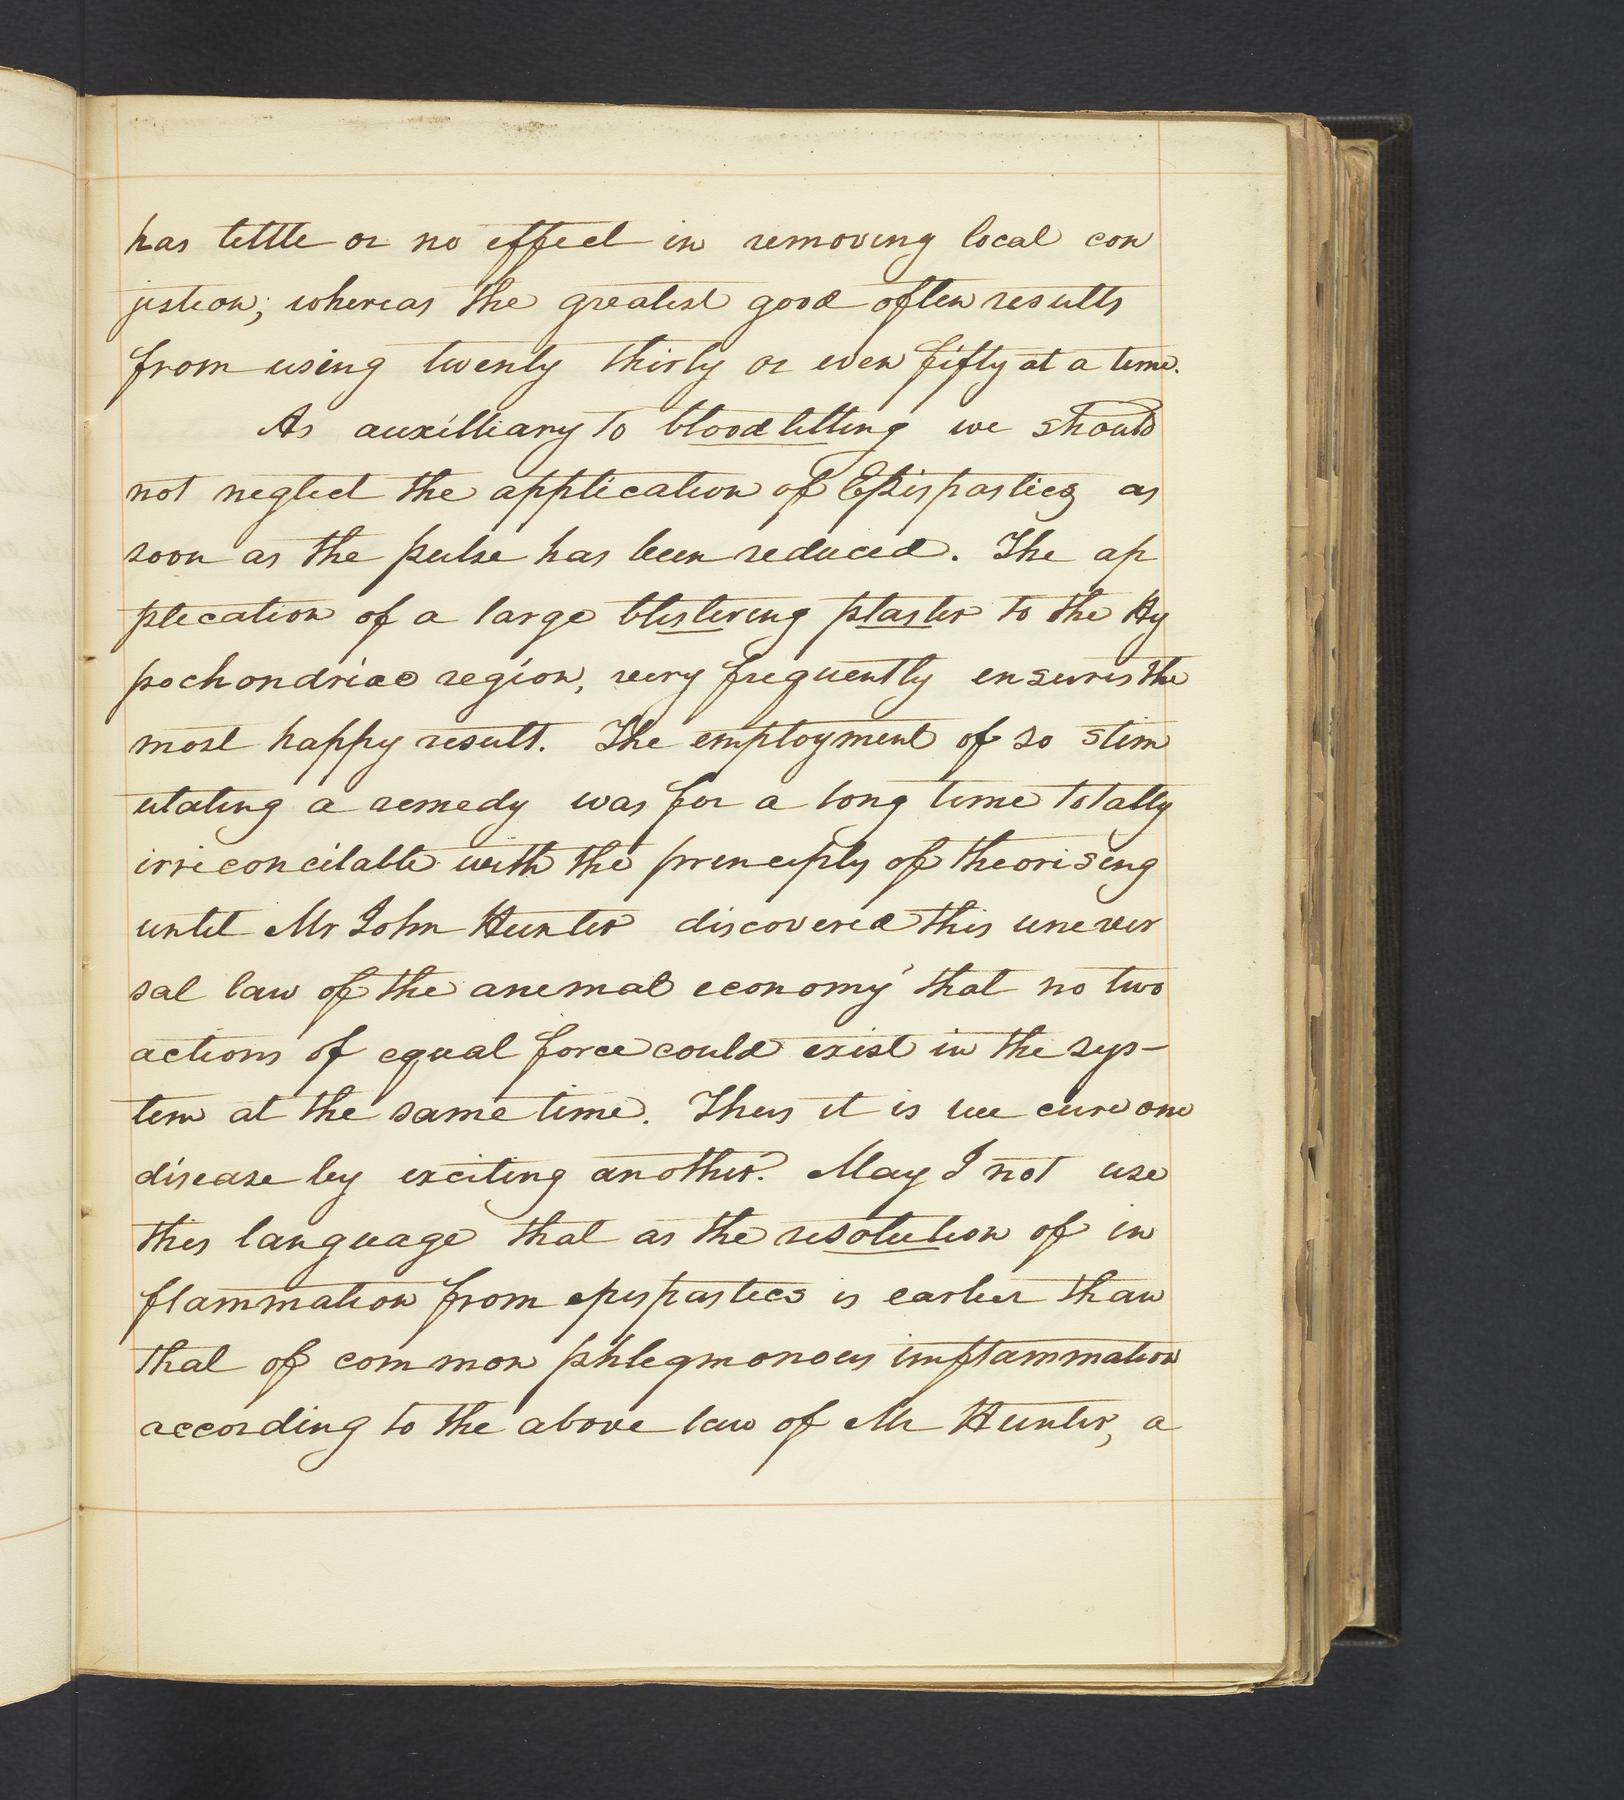 has little or no effect in removing local con
jestion; whereas the greatest good often results
from using twenty thirty or even fifty at a time.
As auxilliary to bloodletting we should
not neglect the application of Epispastics as
soon as the pulse has been reduced. The ap
plication of a large blistering plaster to the Hy
pochondriac region, very frequently ensures the
most happy result. The employment of so stim
ulating a remedy was for a long time totally
irreconcilable with the principly of theorising
until Mr John Hunter discovered this univer
sal law of the animal economy' that no two
actions of equal force could exist in the sys-
tem at the same time. Thus it is we cure one
disease by exciting another. May I not use
this language that as the resolution of in
flammation from epispastics is earlier than
that of common phlegmonous imflammation
according to the above law of Mr Hunter, a